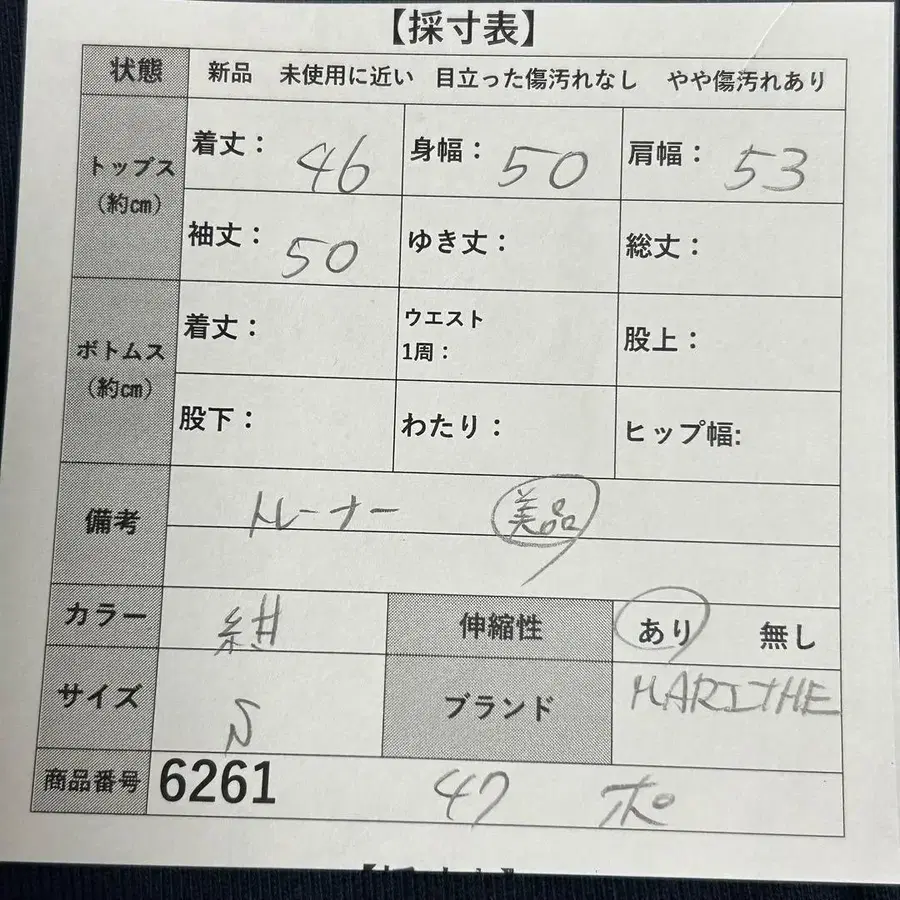 【採寸表】
状態 新品 未使用に近い 目立った傷汚れなし やや傷汚れあり
トップス
(約cm)
着丈： 46 身幅： 50 肩幅： 53
袖丈： 50 ゆき丈： 総丈：
ボトムス
(約cm)
着丈： ウエスト
1周： 股上：
股下： わたり： ヒップ幅:
備考 トレーナー 美品
カラー 紺 伸縮性 あり 無し
サイズ S ブランド MARITHE
商品番号 6261 47 ポ